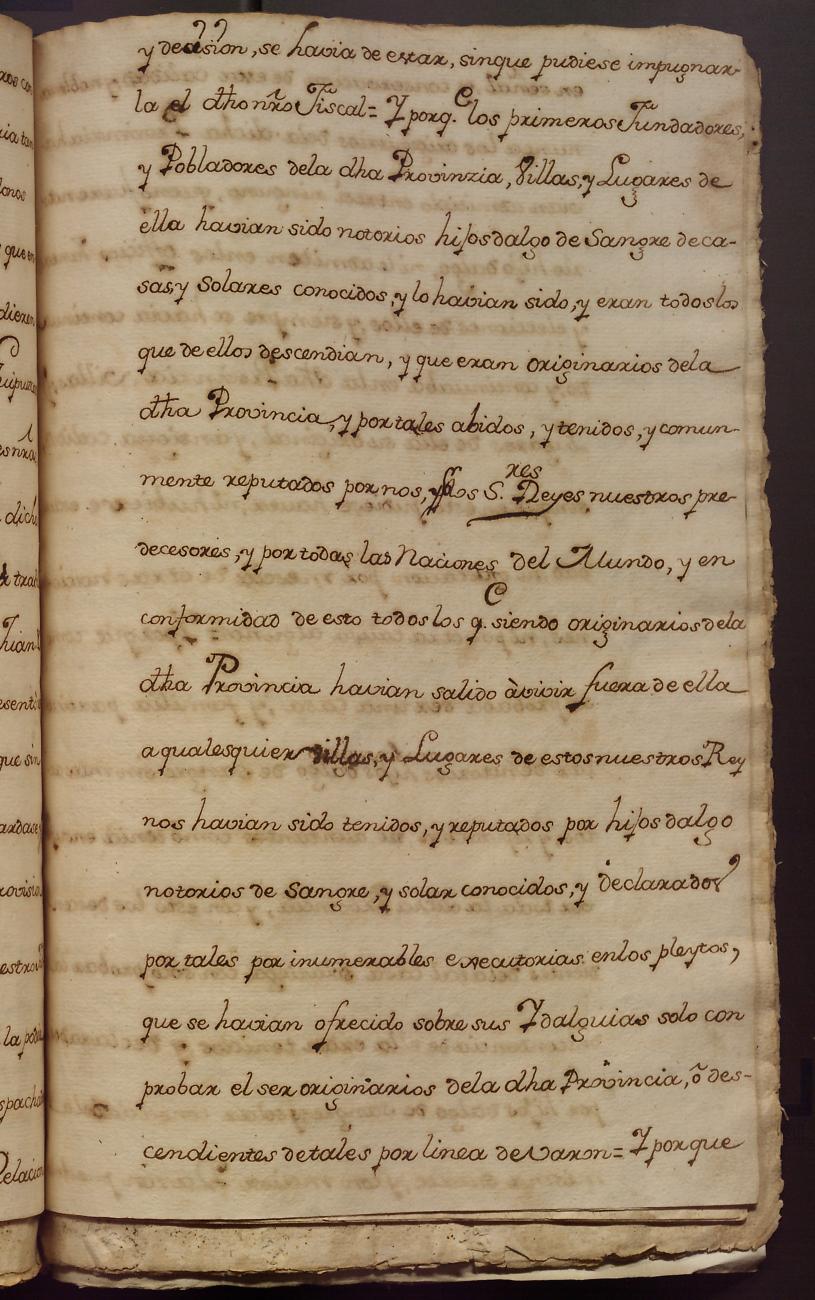 y decision, se havia de estar, sinque pudiese impugnar-
la el dho nro Fiscal = Y porq.e los primeros Fundadores,
y Pobladores dela dha Provinzia, Villas, y Lugares de
ella havian sido notorios hijosdalgo de Sangre de ca-
sas, y Solares conocidos, y lo havian sido, y eran todos los
que de ellos descendian, y que eran originarios dela
dha Provincia, y por tales abidos, y tenidos, y comun-
mente reputados por nos, y los S.res Reyes nuestros pre-
decesores, y por todas las Naciones del Mundo, y en
conformidad de esto todos los q.e siendo originarios dela
dha Provincia havian salido àvivir fuera de ella
a qualesquier villas, y Lugares de estos nuestros Rey
nos havian sido tenidos, y reputados por hijosdalgo
notorios de Sangre, y solar conocidos, y declarados
por tales por inumerables executorias enlos pleytos,
que se havian ofrecido sobre sus Ydalguias solo con
probar el ser originarios dela dha Provincia, ô des-
cendientes detales por linea de Varon = Y porque